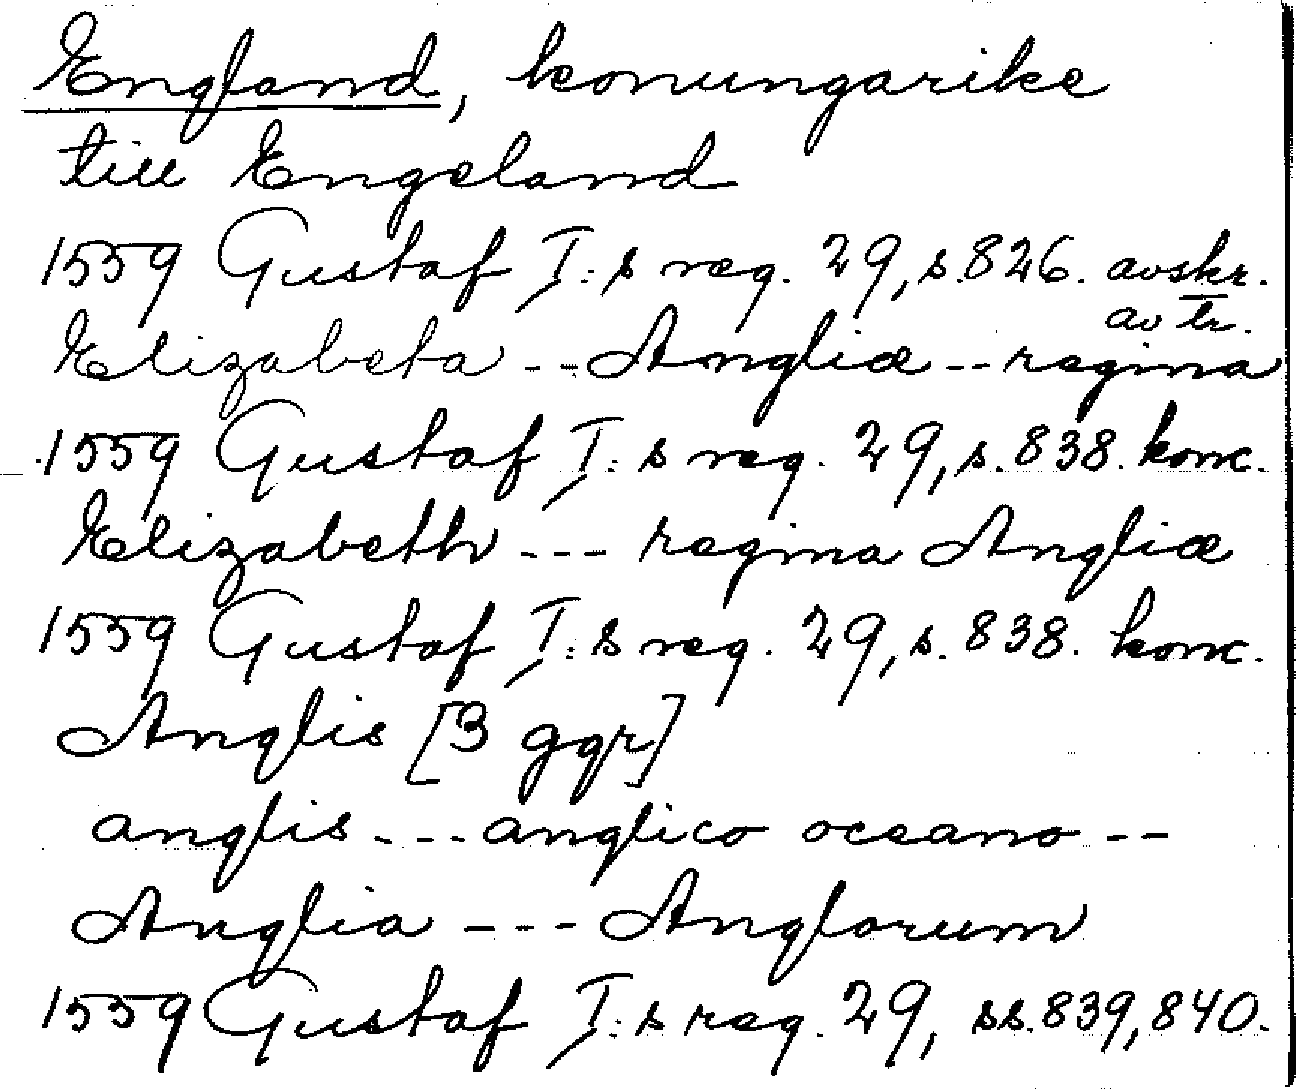 England, konungarike
till Engeland
1559 Gustaf I:s reg. 29, s. 826. avskr.
av tr.
Elizabeta -- Angliæ -- regina
1559 Gustaf I:s reg. 29, s. 838. konc.
Elizabeth --- regina Angliæ
1559 Gustaf I:s reg. 29, s. 838. konc.
Anglis [3 ggr]
anglis --- anglico oceano --
Anglia --- Anglorum
1559 Gustaf I:s reg. 29, ss. 839, 840.